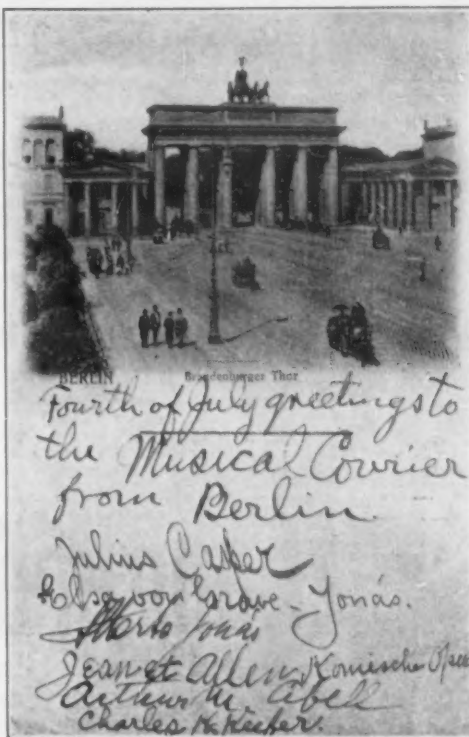 BERLIN Brandenburger Thor
Fourth of July greetings to
the Musical Courier
from Berlin.
Julius Casper
Elsa von Grave-Jonás.
Alberto Jonás
Jeanet Allen, Komische Oper
Arthur M. Abell
Charles K.